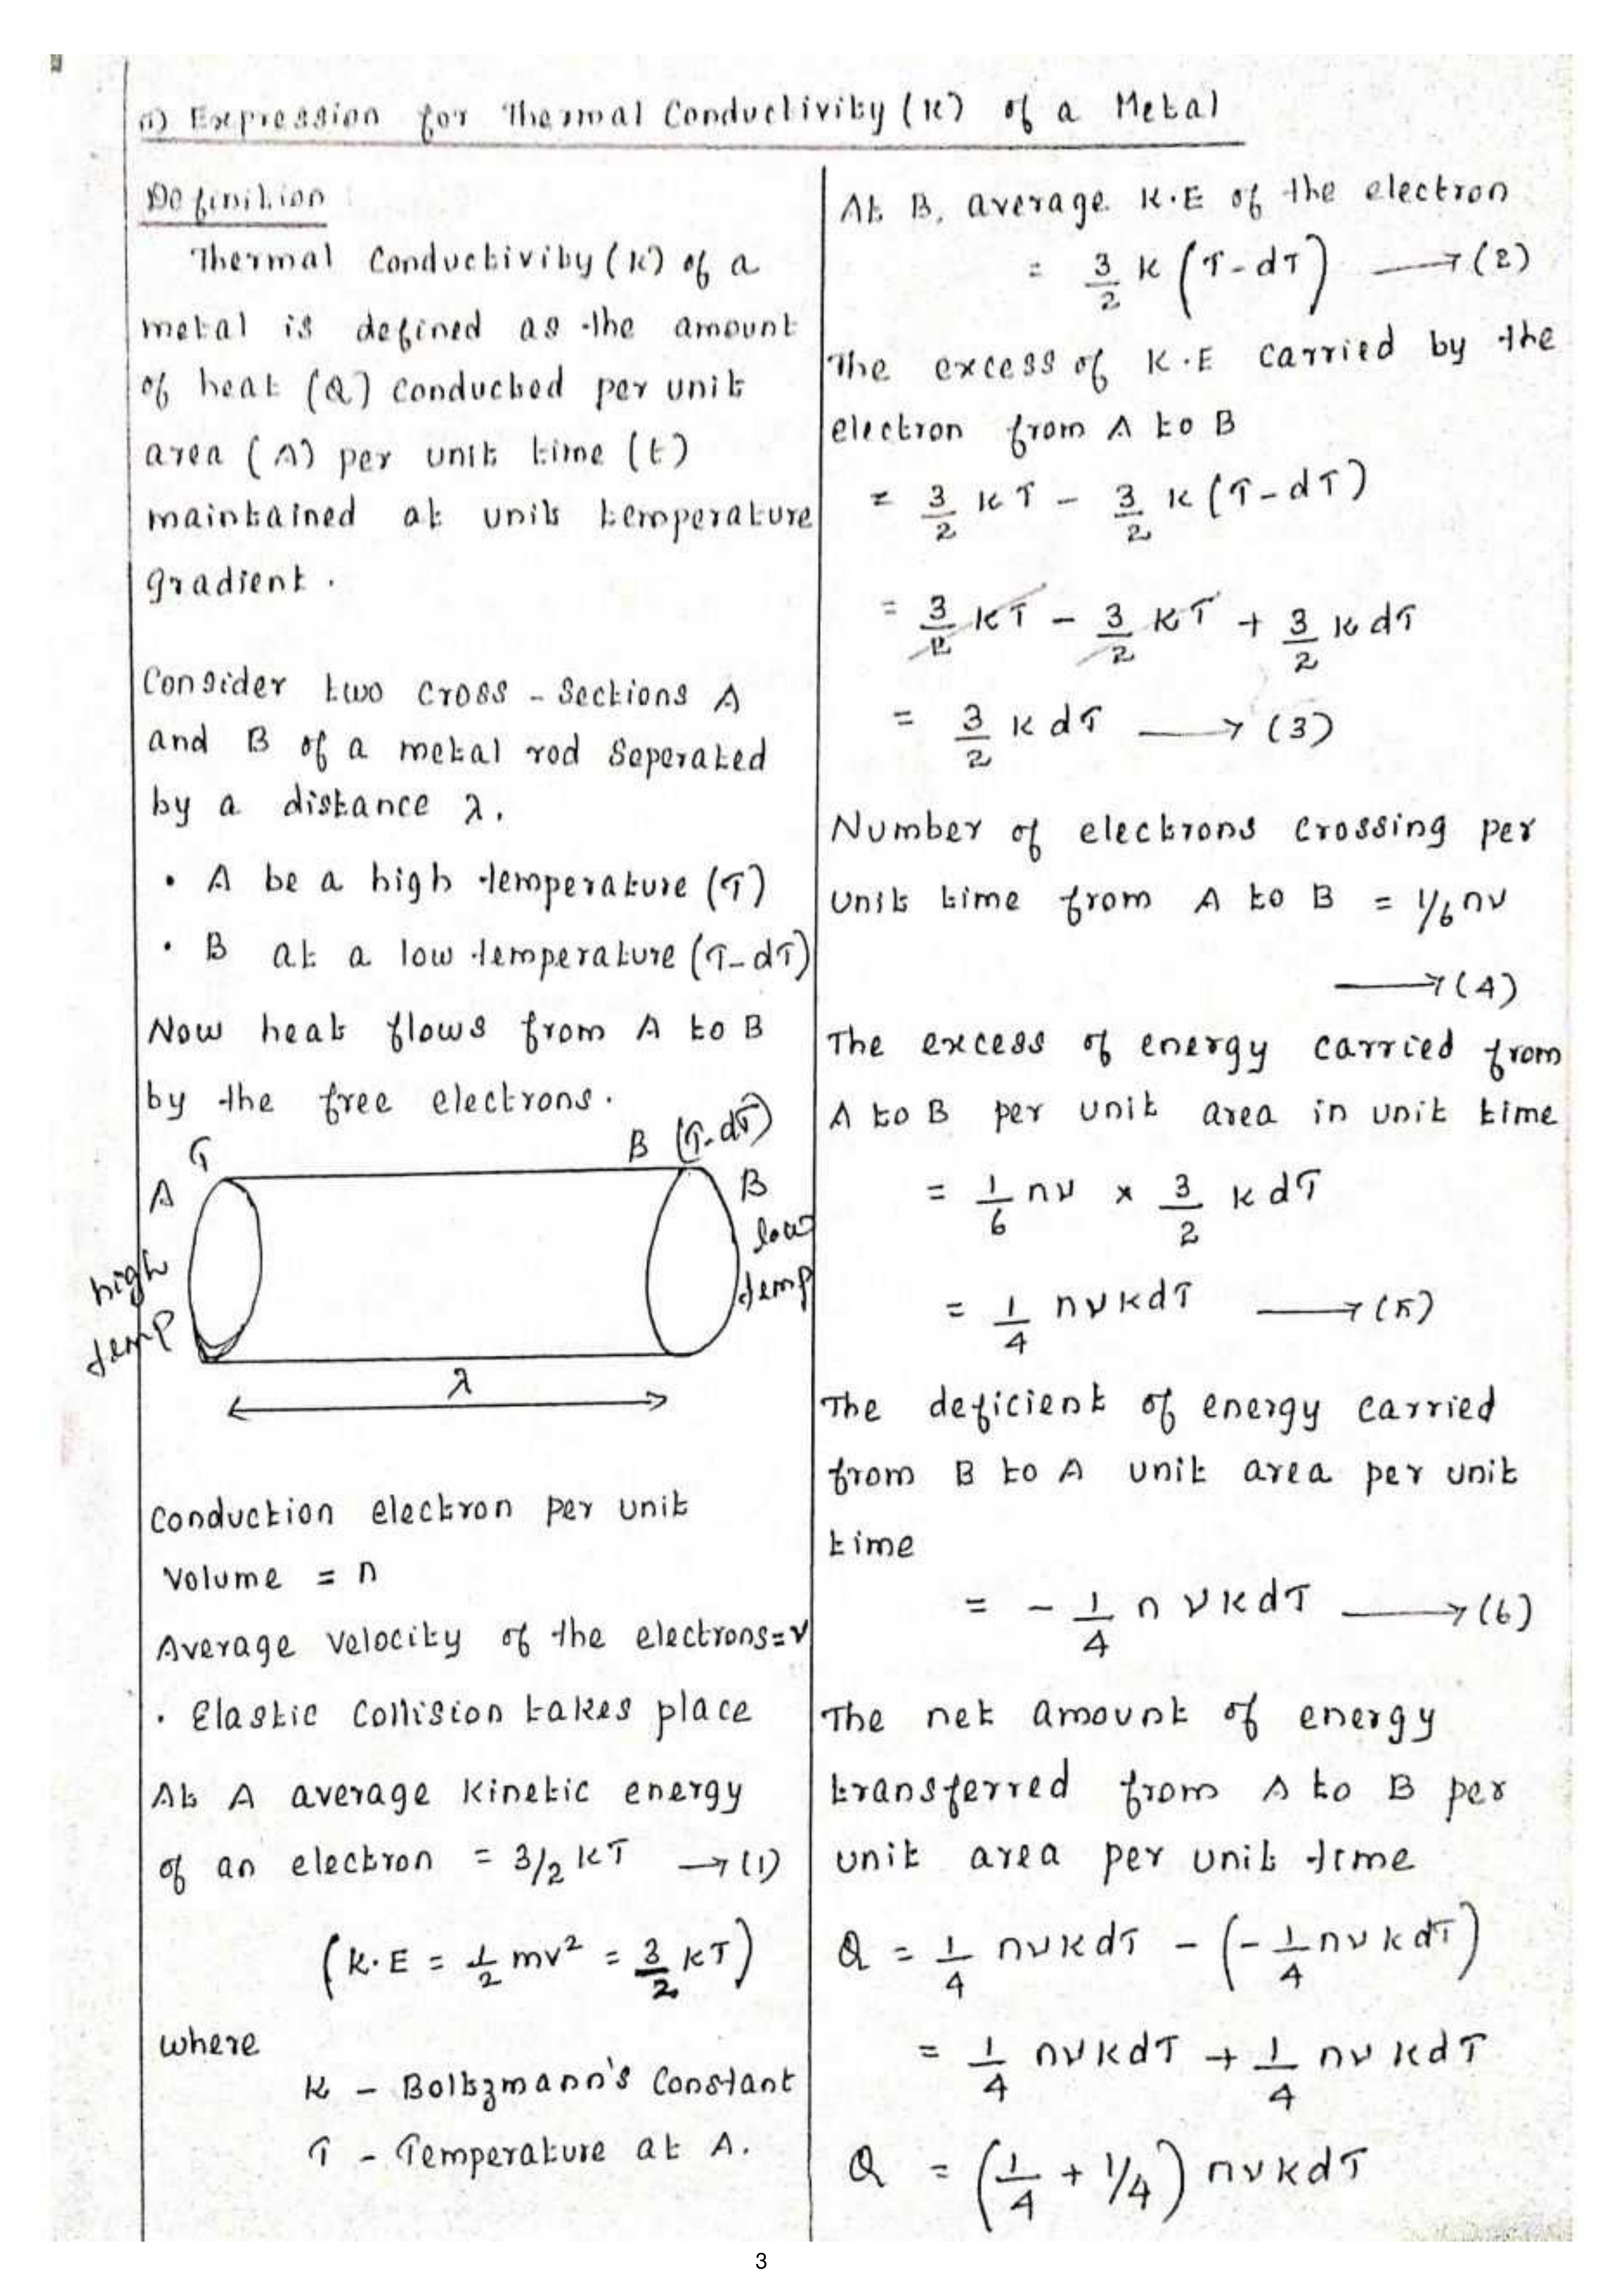 a) Expression for Thermal Conductivity (K) of a Metal
Definition
Thermal Conductivity (K) of a
metal is defined as the amount
of heat (Q) conducted per unit
area (A) per unit time (t)
maintained at unit temperature
gradient.
Consider two cross - Sections A
and B of a metal rod Seperated
by a distance λ.
• A be a high temperature (T)
• B at a low temperature (T-dT)
Now heat flows from A to B
by the free electrons.
T
B (T-dT)
A
B
high
temp
low
temp
λ
Conduction electron per unit
Volume = n
Average velocity of the electrons = v
• Elastic Collision takes place
At A average kinetic energy
of an electron = 3/2 KT → (1)
(K.E = 1/2 mv² = 3/2 KT)
where
K - Boltzmann's Constant
T - Temperature at A.
At B, average K.E of the electron
= 3/2 K (T-dT) → (2)
The excess of K.E carried by the
electron from A to B
= 3/2 KT - 3/2 K (T-dT)
= 3/2 KT - 3/2 KT + 3/2 K dT
= 3/2 K dT → (3)
Number of electrons crossing per
unit time from A to B = 1/6 nv
→ (4)
The excess of energy carried from
A to B per unit area in unit time
= 1/6 nv × 3/2 K dT
= 1/4 nvKdT → (5)
The deficient of energy carried
from B to A unit area per unit
time
= - 1/4 n vKdT → (6)
The net amount of energy
transferred from A to B per
unit area per unit time
Q = 1/4 nvKdT - (- 1/4 nvKdT)
= 1/4 nvKdT + 1/4 nvKdT
Q = (1/4 + 1/4) nvKdT
3